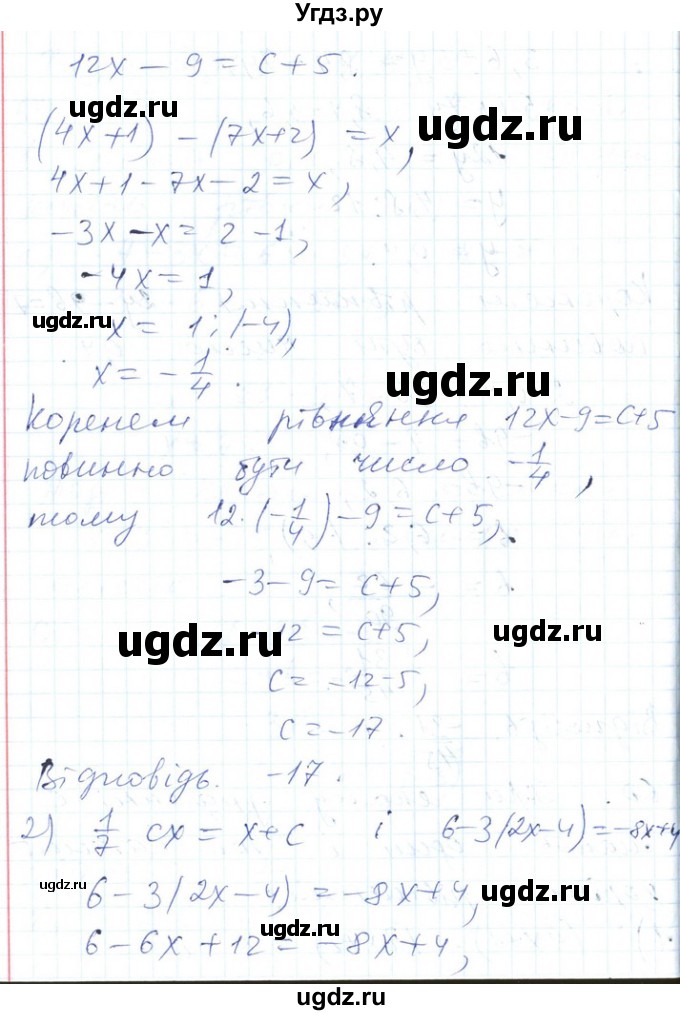 Угдз.ру
12x – 9 = c + 5.
ugdz.ru
(4x+1) – (7x+2) = x,
ugdz.ru
4x+1 – 7x – 2 = x,
–3x – x = 2 – 1,
–4x = 1,
ugdz.ru
x = 1 : (–4),
x = –1/4.
ugdz.ru
Коренем рівняння 12x–9=c+5
повинно бути число –1/4,
тому 12·(–1/4) – 9 = c+5,
–3 – 9 = c+5,
ugdz.ru
12 = c+5,
ugdz.ru
c = –12–5,
c = –17.
Відповідь. –17.
2) 1/7 cx = x+c і 6–3(2x–4)=–8x+4
ugdz.ru
6–3(2x–4) = –8x+4,
ugdz.ru
6–6x+12 = –8x+4,
ugdz.ru
ugdz.ru